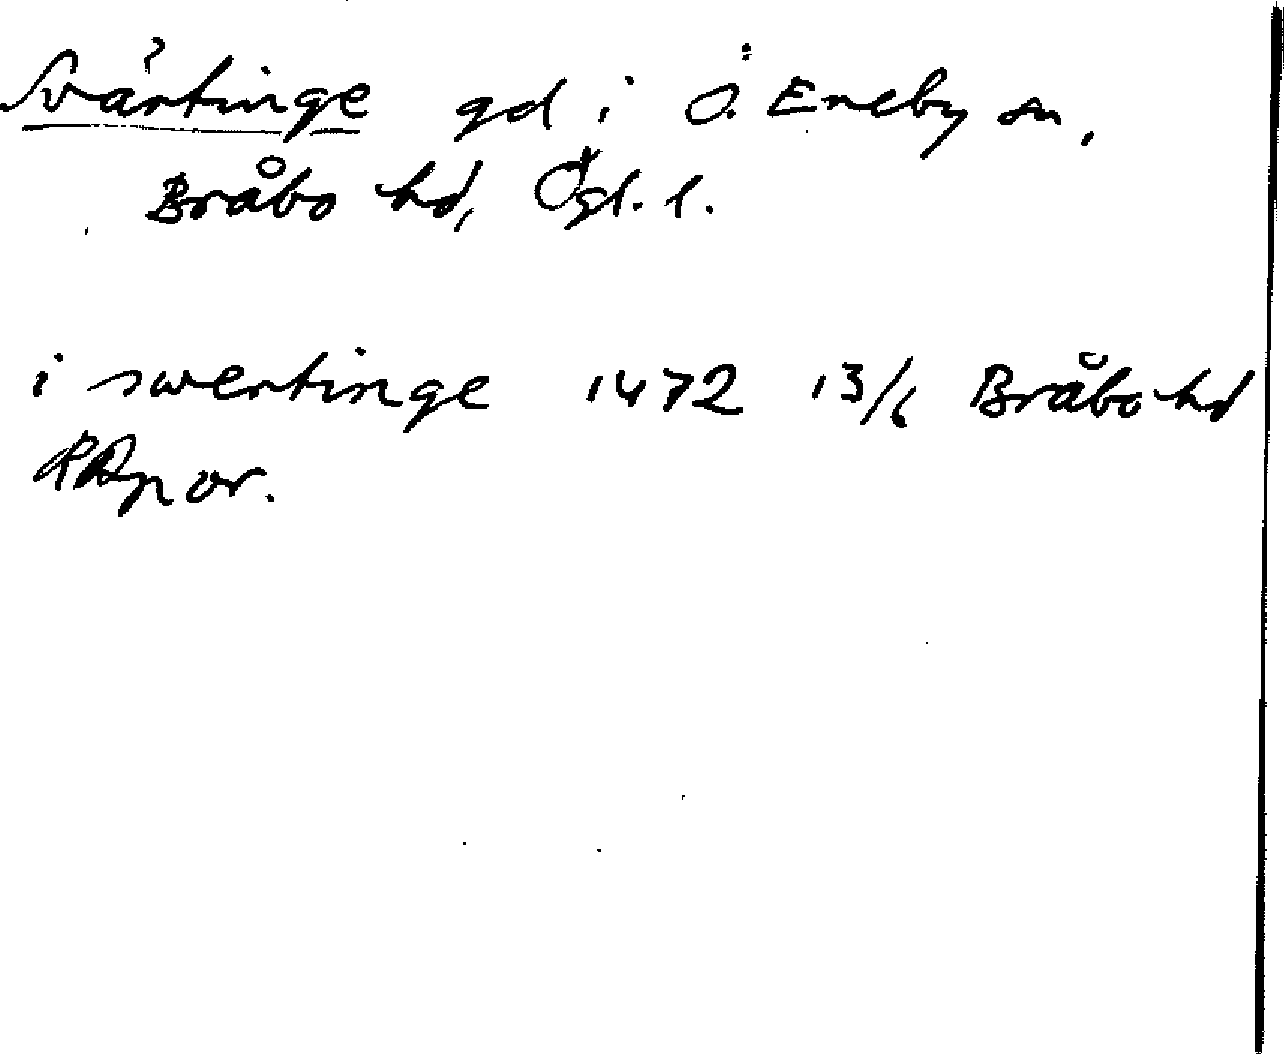 Svärtinge gd i Ö. Eneby sn,
Bråbo hd, Ögl. l.
i swertinge 1472 13/6 Bråbo hd
RApor.